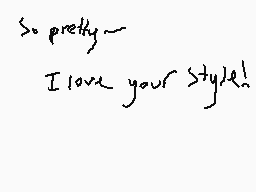 So pretty~
I love your style!